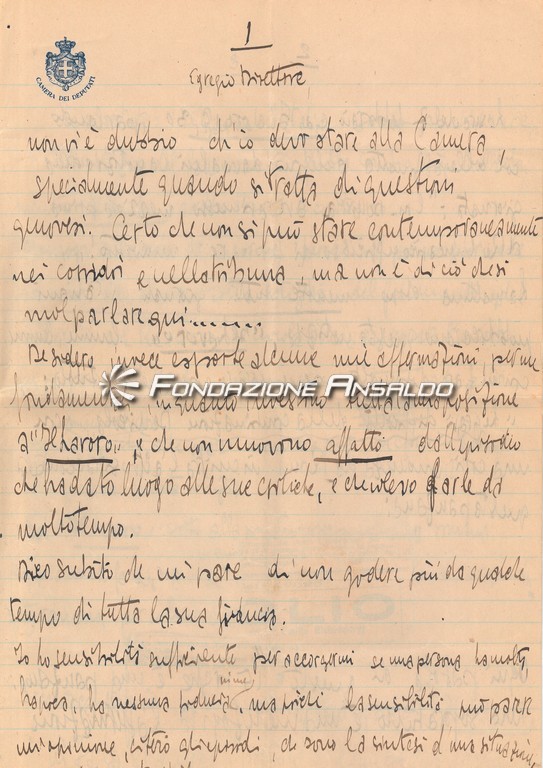 1
CAMERA DEI DEPUTATI
Egregio Direttore,
non vi è dubbio ch'io devo stare alla Camera,
specialmente quando si tratta di questioni
genovesi. Certo che non si può stare contemporaneamente
nei corridoi e nella tribuna, ma non è di ciò che si
vuol parlar qui.......
Desidero invece esporle alcune mie affermazioni, per me
fondamentali, in quanto investono tutta la mia posizione
a "Il Lavoro", e che non muovono affatto dall'episodio
che ha dato luogo alle sue critiche, e che volevo farle da
molto tempo.
Dico subito che mi pare di non godere più da qualche
tempo di tutta la sua fiducia.
Io ho sensibilità sufficiente per accorgermi se una persona ha molta
ha poca, ha nessuna fiducia, ma poiché la sensibilità può parere
un'opinione, citerò gli episodi, che sono la sintesi d'una situazione
FONDAZIONE ANSALDO